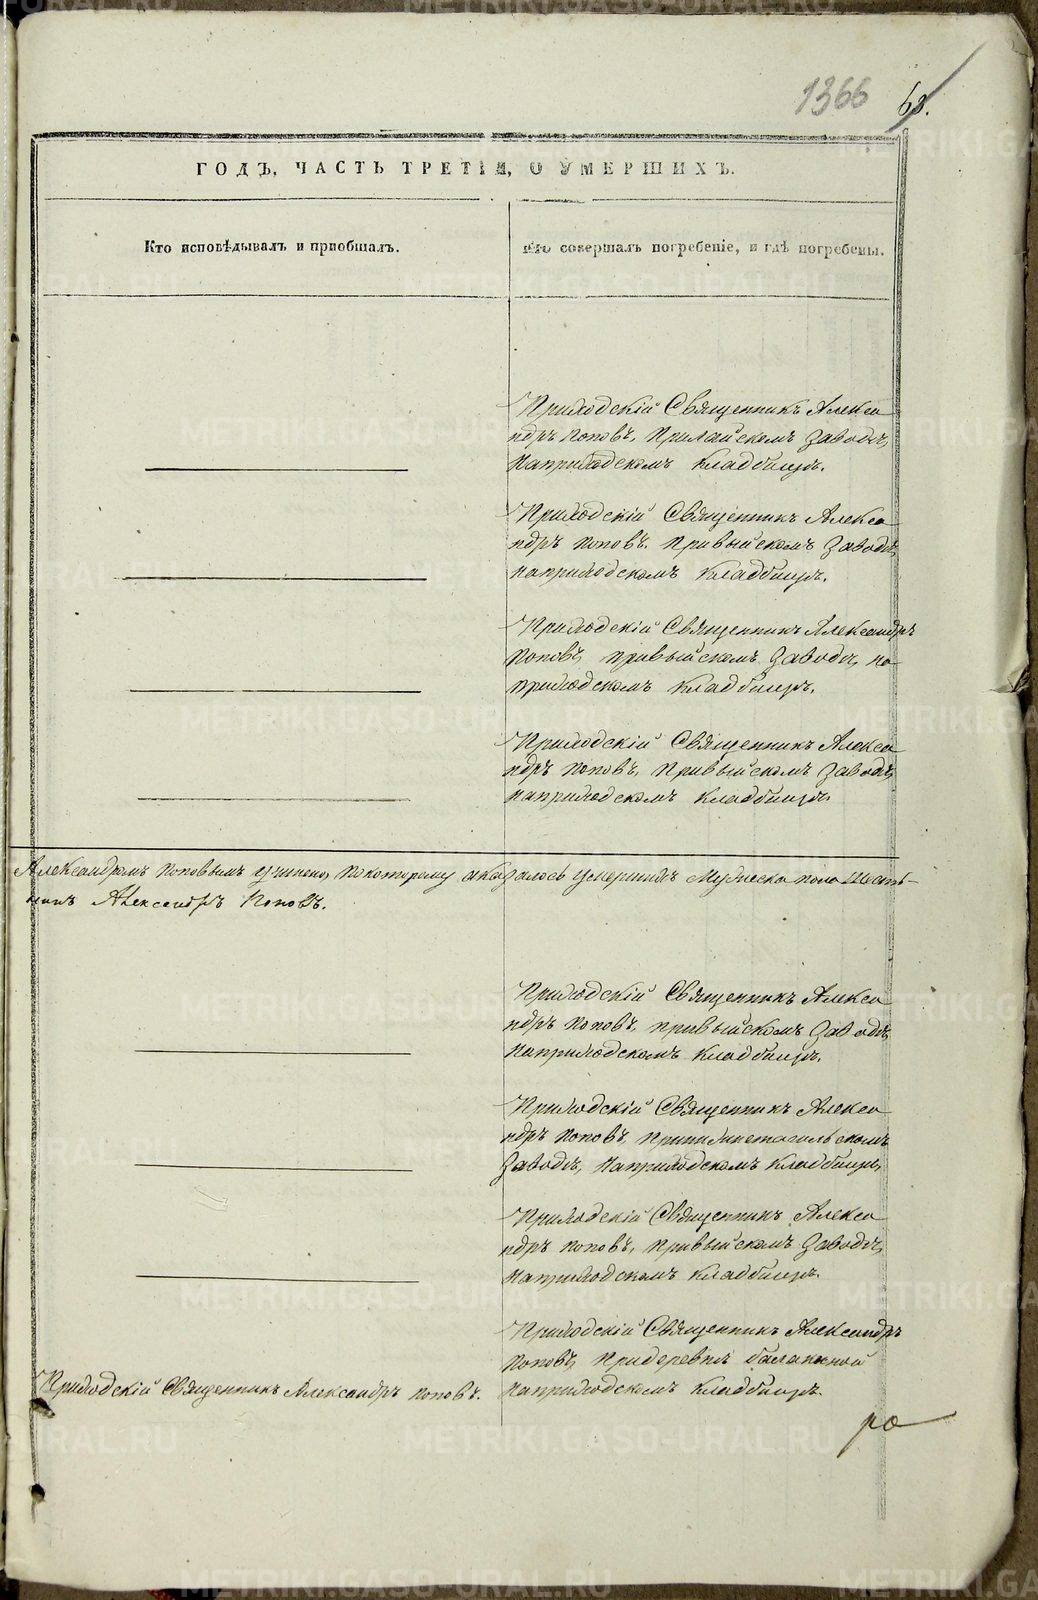 1366 68.
ГОДЪ, ЧАСТЬ ТРЕТІЯ, О УМЕРШИХЪ.
Кто исповѣдывалъ и пріобщалъ.
Кто совершалъ погребеніе, и гдѣ погребены.
Приходскій Священникъ Алекса
ндръ Поповъ, при Лайскомъ Заводѣ,
на приходскомъ кладбищѣ.
Приходскій Священникъ Алекса
ндръ Поповъ. при Выйскомъ Заводѣ,
на приходскомъ кладбищѣ.
Приходскій Священникъ Александръ
Поповъ, при Выйскомъ Заводѣ, на
приходскомъ кладбищѣ.
Приходскій Священникъ Алекса
ндръ Поповъ, при Выйскомъ Заводѣ,
на приходскомъ кладбищѣ.
Александромъ Поповымъ учинено, по которому оказалось умершихъ мужеска пола шесть
Александръ Поповъ.
Приходскій Священникъ Алекса
ндръ Поповъ, при Выйскомъ Заводѣ,
на приходскомъ кладбищѣ.
Приходскій Священникъ Алекса
ндръ Поповъ, при Нижнетагильскомъ
Заводѣ, на приходскомъ кладбищѣ,
Приходскій Священникъ Алекса
ндръ Поповъ, при Выйскомъ Заводѣ,
на приходскомъ кладбищѣ.
Приходскій Священникъ Александръ
Поповъ, при деревнѣ Балакиной
на приходскомъ кладбищѣ.
Приходскій Священникъ Александръ Поповъ.
ро
METRIKI.GASO-URAL.RU